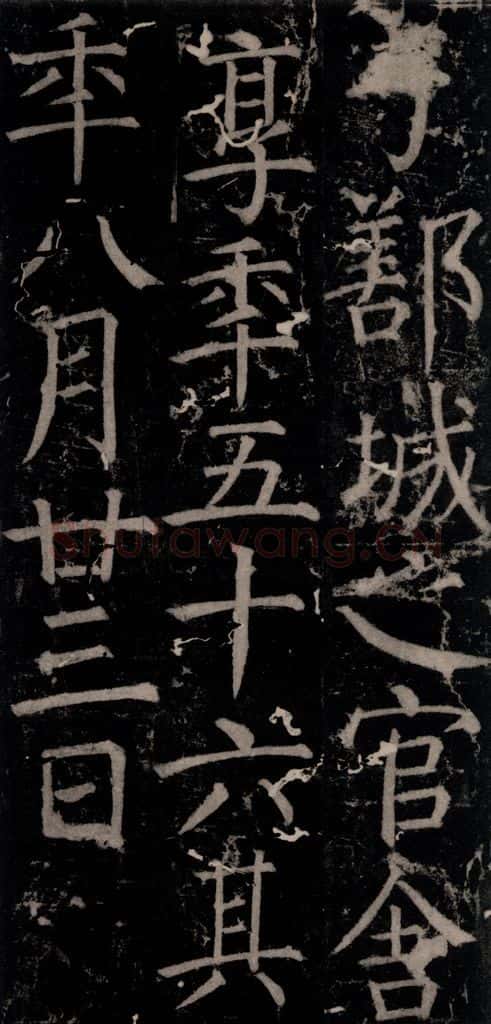 于鄯城之官舍
享秊五十六其
秊八月廿三日
Shufawang.CN